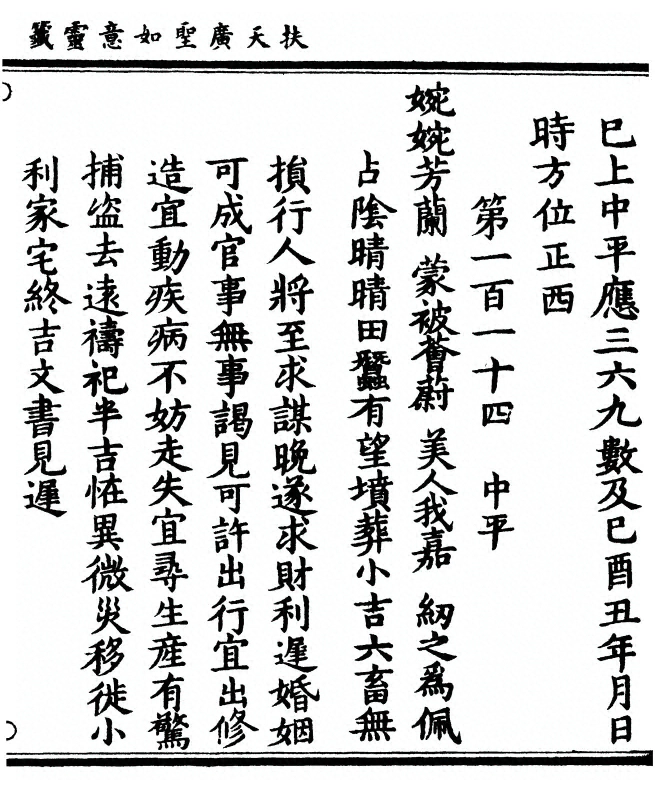 扶天廣聖如意靈籤
巳上中平應三六九數及巳酉丑年月日
時方位正西
第一百一十四 中平
婉婉芳蘭 蒙被薈蔚 美人我嘉 紉之爲佩
占陰晴晴田蠶有望墳葬小吉六畜無
損行人將至求謀晚遂求財利遲婚姻
可成官事無事謁見可許出行宜出修
造宜動疾病不妨走失宜尋生產有驚
捕盜去遠禱祀半吉怪異微災移徙小
利家宅終吉文書見遲